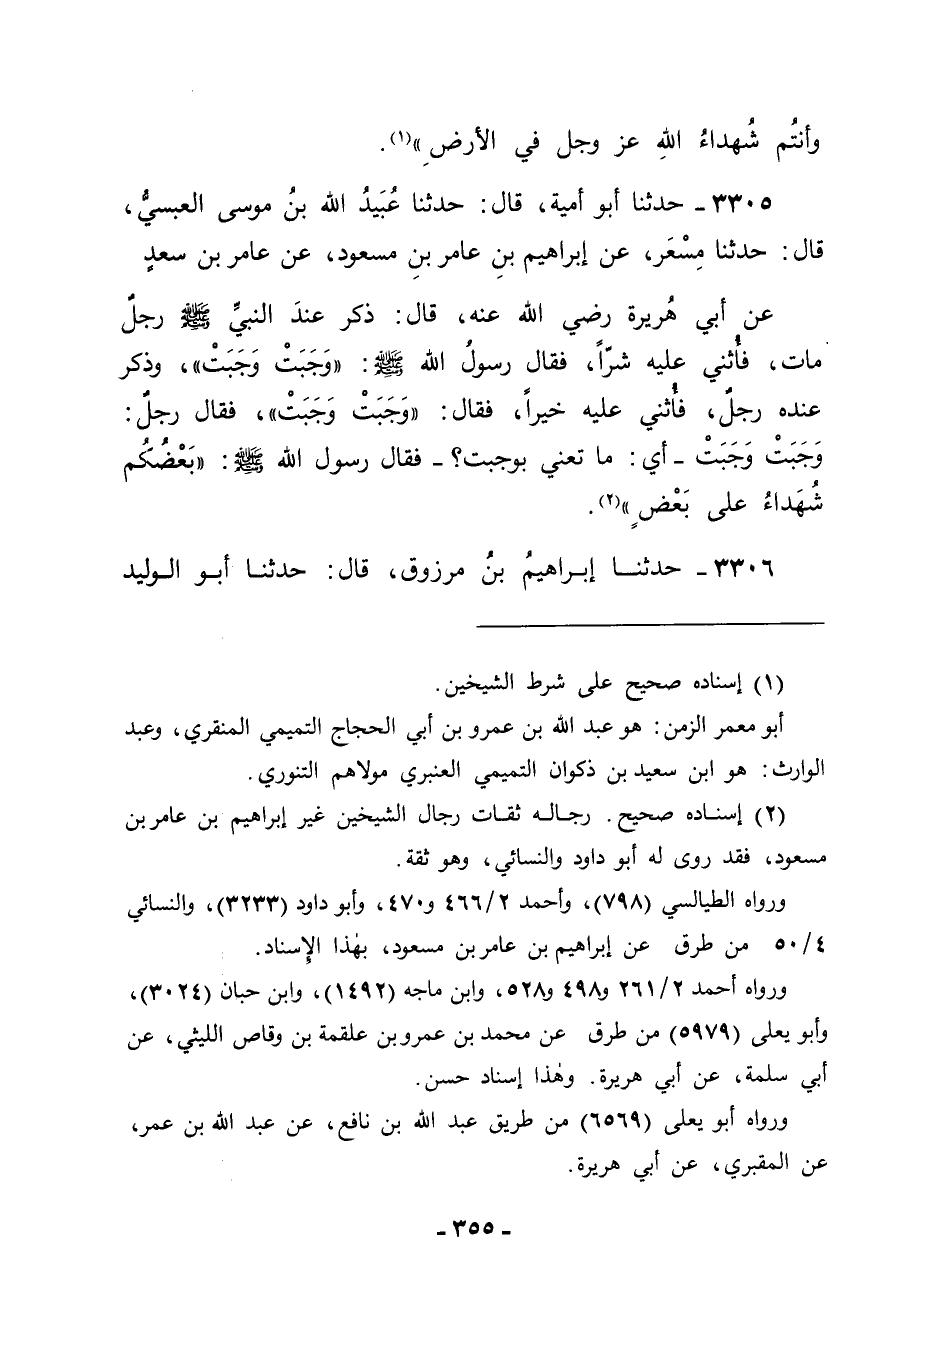 وأنتُم شُهداءُ اللهِ عز وجل في الأرضِ»(١).
٣٣٠٥ ـ حدثنا أبو أمية، قال: حدثنا عُبَيدُ الله بنُ موسى العبسيُّ،
قال: حدثنا مِسْعَر، عن إبراهيم بنِ عامر بنِ مسعود، عن عامر بن سعدٍ
عن أبي هُريرة رضي الله عنه، قال: ذكر عندَ النبيِّ ﷺ رجلٌ
مات، فأُثني عليه شرّاً، فقال رسولُ الله ﷺ: «وَجَبَتْ وَجَبَتْ»، وذكر
عنده رجلٌ، فأُثني عليه خيراً، فقال: «وَجَبَتْ وَجَبَتْ»، فقال رجلٌ:
وَجَبَتْ وَجَبَتْ ـ أي: ما تعني بوجبت؟ ـ فقال رسول الله ﷺ: «بَعْضُكُم
شُهَداءُ على بَعْضٍ»(٢).
٣٣٠٦ ـ حدثنا إبراهيمُ بنُ مرزوق، قال: حدثنا أبو الوليد
(١) إسناده صحيح على شرط الشيخين.
أبو معمر الزمن: هو عبد الله بن عمرو بن أبي الحجاج التميمي المنقري، وعبد
الوارث: هو ابن سعيد بن ذكوان التميمي العنبري مولاهم التنوري.
(٢) إسناده صحيح. رجاله ثقات رجال الشيخين غير إبراهيم بن عامر بن
مسعود، فقد روى له أبو داود والنسائي، وهو ثقة.
ورواه الطيالسي (٧٩٨)، وأحمد ٤٦٦/٢ و٤٧٠، وأبو داود (٣٢٣٣)، والنسائي
٥٠/٤ من طرق عن إبراهيم بن عامر بن مسعود، بهٰذا الإسناد.
ورواه أحمد ٢٦١/٢ و٤٩٨ و٥٢٨، وابن ماجه (١٤٩٢)، وابن حبان (٣٠٢٤)،
وأبو يعلى (٥٩٧٩) من طرق عن محمد بن عمرو بن علقمة بن وقاص الليثي، عن
أبي سلمة، عن أبي هريرة. وهٰذا إسناد حسن.
ورواه أبو يعلى (٦٥٦٩) من طريق عبد الله بن نافع، عن عبد الله بن عمر،
عن المقبري، عن أبي هريرة.
ـ ٣٥٥ ـ